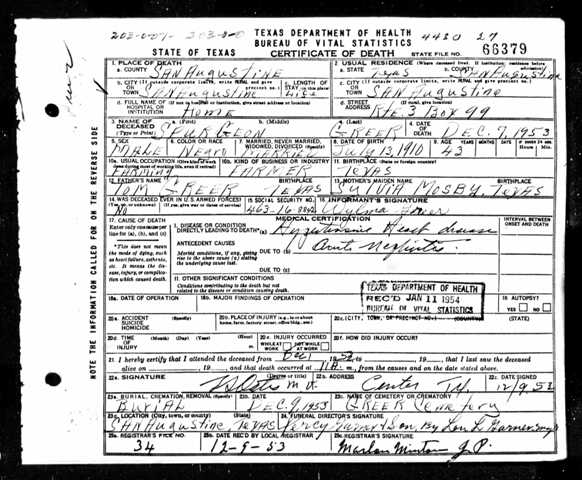 203-0-01- 203-0-0
TEXAS DEPARTMENT OF HEALTH
BUREAU OF VITAL STATISTICS
4430 27
STATE OF TEXAS CERTIFICATE OF DEATH STATE FILE NO. 66379
1. PLACE OF DEATH
a. COUNTY San Augustine
2. USUAL RESIDENCE (Where deceased lived. If institution: residence before admission)
a. STATE Texas b. COUNTY San Augustine
b. CITY (If outside corporate limits, write RURAL and give precinct no.)
OR
TOWN San Augustine
c. LENGTH OF STAY (in this place) Life
c. CITY (If outside corporate limits, write RURAL and give precinct no.)
OR
TOWN San Augustine
d. FULL NAME OF (If not in hospital or institution, give street address or location)
HOSPITAL OR
INSTITUTION Home
d. STREET ADDRESS (If rural, give location)
Rte. 3 Box 99
3. NAME OF DECEASED (Type or Print)
a. (First) Spurgeon b. (Middle) c. (Last) Greer
4. DATE OF DEATH Dec. 7, 1953
5. SEX Male
6. COLOR OR RACE Negro
7. MARRIED, NEVER MARRIED, WIDOWED, DIVORCED (Specify) Married
8. DATE OF BIRTH July 13, 1910
9. AGE YEARS 43 MONTHS DAYS Hours Min.
10a. USUAL OCCUPATION (Give kind of work done during most of working life, even if retired) Farming
10b. KIND OF BUSINESS OR INDUSTRY Farmer
11. BIRTHPLACE Texas
12. FATHER'S NAME Tom Greer BIRTHPLACE Texas
13. MOTHER'S MAIDEN NAME Mosby BIRTHPLACE Texas
14. WAS DECEASED EVER IN U.S. ARMED FORCES? (If yes, give war or dates of service) No
15. SOCIAL SECURITY NO. 463-16-
16. INFORMANT'S SIGNATURE Wylma Greer
17. CAUSE OF DEATH
Enter only one cause per line for (a), (b), and (c)
*This does not mean the mode of dying, such as heart failure, asthenia, etc. It means the disease, injury, or complication which caused death.
MEDICAL CERTIFICATION
I. DISEASE OR CONDITION DIRECTLY LEADING TO DEATH* (a) Hypertensive Heart disease
INTERVAL BETWEEN ONSET AND DEATH
ANTECEDENT CAUSES
Morbid conditions, if any, giving rise to the above cause (a) stating the underlying cause last.
DUE TO (b) Acute Nephritis
DUE TO (c)
II. OTHER SIGNIFICANT CONDITIONS
Conditions contributing to the death but not related to the disease or condition causing death.
TEXAS DEPARTMENT OF HEALTH
REC'D JAN 11 1954
BUREAU OF VITAL STATISTICS
18a. DATE OF OPERATION
18b. MAJOR FINDINGS OF OPERATION
19. AUTOPSY?
YES NO
20a. ACCIDENT SUICIDE HOMICIDE (Specify)
20b. PLACE OF INJURY (e.g., in or about home, farm, factory, street, office bldg., etc.)
20c. (CITY, TOWN, OR PRECINCT NO.) (COUNTY) (STATE)
20d. TIME OF INJURY (Month) (Day) (Year) (Hour)
20e. INJURY OCCURRED WHILE AT WORK NOT WHILE AT WORK
20f. HOW DID INJURY OCCUR?
21. I hereby certify that I attended the deceased from Dec 1, 19 , to , 19 , that I last saw the deceased
alive on , 19 , and that death occurred at m., from the causes and on the date stated above.
22a. SIGNATURE (Degree or title) M.D.
22b. ADDRESS Center Tx.
22c. DATE SIGNED 12/9/53
23a. BURIAL, CREMATION, REMOVAL (Specify) Burial
23b. DATE Dec. 9, 1953
23c. NAME OF CEMETERY OR CREMATORY Greer Cemetery
23d. LOCATION (City, town, or county) (State) San Augustine, Texas
24. FUNERAL DIRECTOR'S SIGNATURE Percy Garner & Son, By Lou L. Garner
25a. REGISTRAR'S FILE NO. 34
25b. DATE REC'D BY LOCAL REGISTRAR 12-9-53
25c. REGISTRAR'S SIGNATURE Marlon Minton J.P.
NOTE THE INFORMATION CALLED FOR ON THE REVERSE SIDE